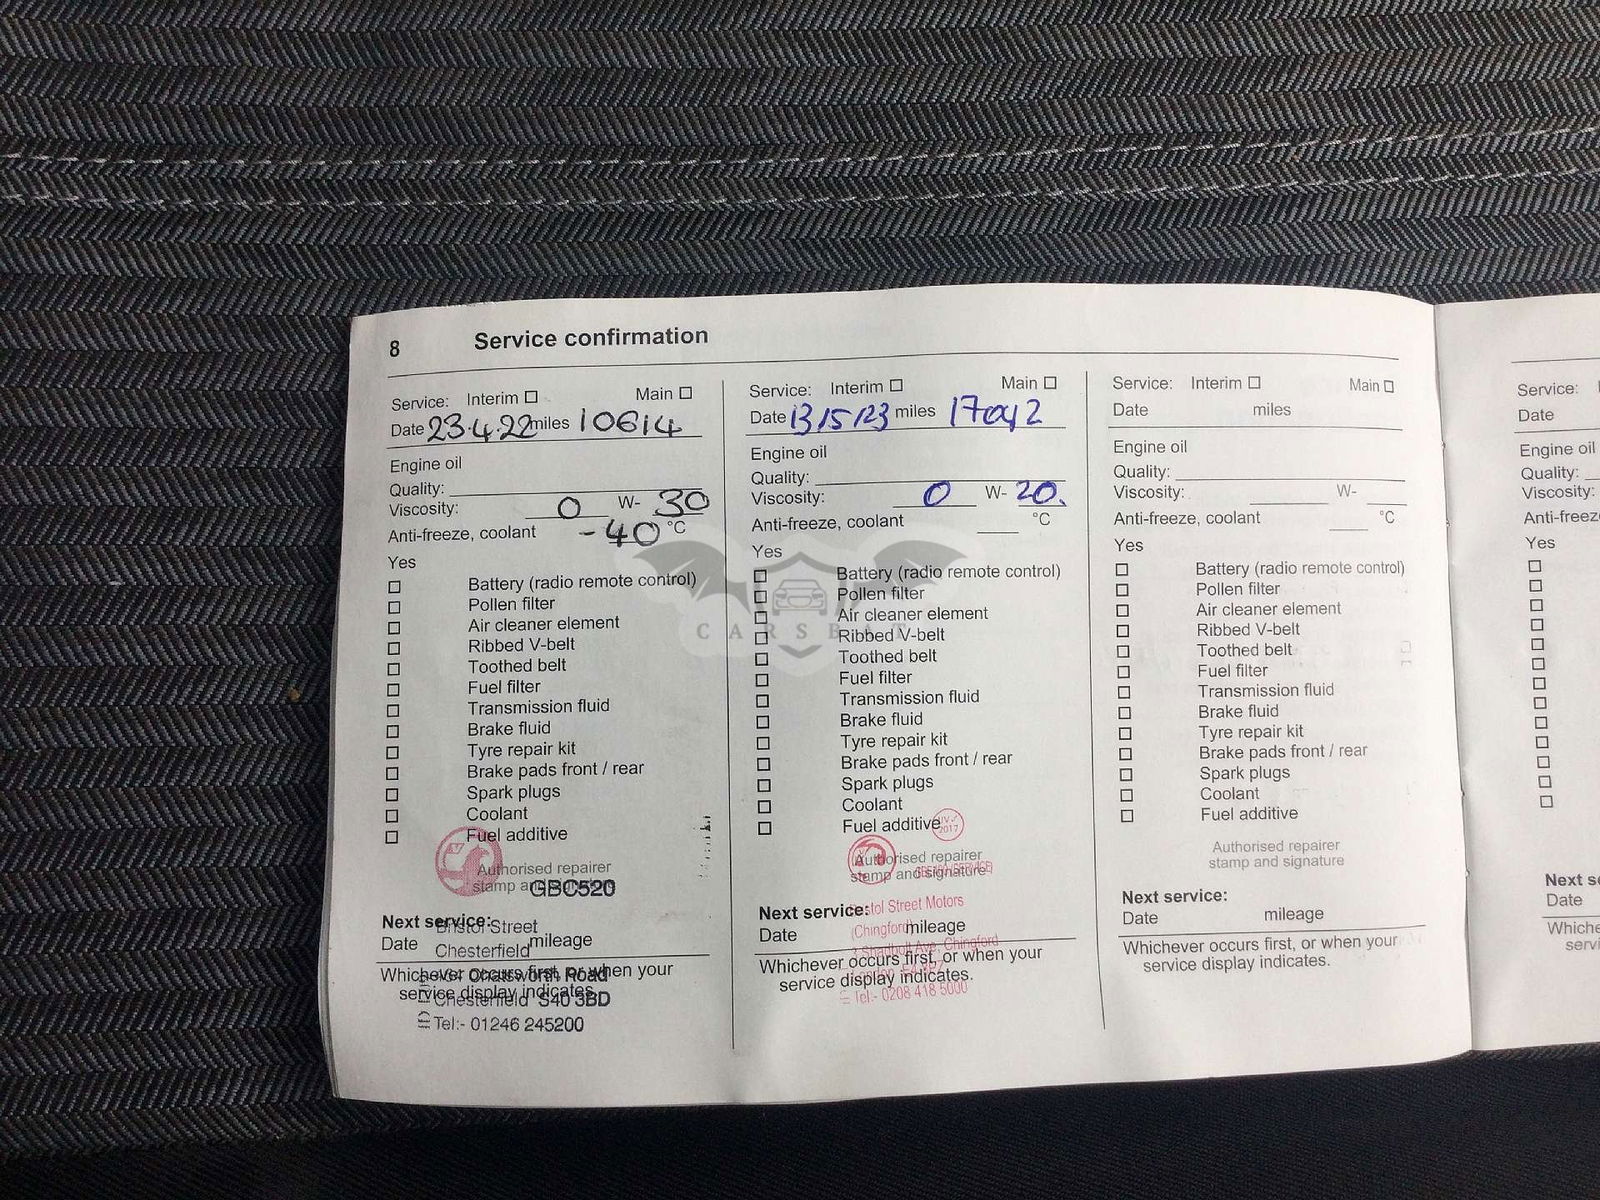 8 Service confirmation
Service: Interim Main
Date 23.4.22 miles 10614
Engine oil
Quality:
Viscosity: 0 W- 30
Anti-freeze, coolant -40 °C
Yes
Battery (radio remote control)
Pollen filter
Air cleaner element
Ribbed V-belt
Toothed belt
Fuel filter
Transmission fluid
Brake fluid
Tyre repair kit
Brake pads front / rear
Spark plugs
Coolant
Fuel additive
Authorised repairer
stamp and signature
GBC520
Next service:
Bristol Street
Chesterfield
Date mileage
Whichever occurs first, or when your
service display indicates.
Chatsworth Road
Chesterfield S40 3BD
Tel:- 01246 245200
Service: Interim Main
Date 13/5/23 miles 17042
Engine oil
Quality:
Viscosity: 0 W- 20.
Anti-freeze, coolant °C
Yes
Battery (radio remote control)
Pollen filter
Air cleaner element
Ribbed V-belt
Toothed belt
Fuel filter
Transmission fluid
Brake fluid
Tyre repair kit
Brake pads front / rear
Spark plugs
Coolant
Fuel additive
2017
Authorised repairer
stamp and signature
(SERVICE)
Next service:
Bristol Street Motors
(Chingford)
Date mileage
Chingford
Whichever occurs first, or when your
service display indicates.
London
Tel:- 0208 418 5000
Service: Interim Main
Date miles
Engine oil
Quality:
Viscosity: W-
Anti-freeze, coolant °C
Yes
Battery (radio remote control)
Pollen filter
Air cleaner element
Ribbed V-belt
Toothed belt
Fuel filter
Transmission fluid
Brake fluid
Tyre repair kit
Brake pads front / rear
Spark plugs
Coolant
Fuel additive
Authorised repairer
stamp and signature
Next service:
Date mileage
Whichever occurs first, or when your
service display indicates.
Service:
Date
Engine oil
Quality:
Viscosity:
Yes
Date
CARSBAT